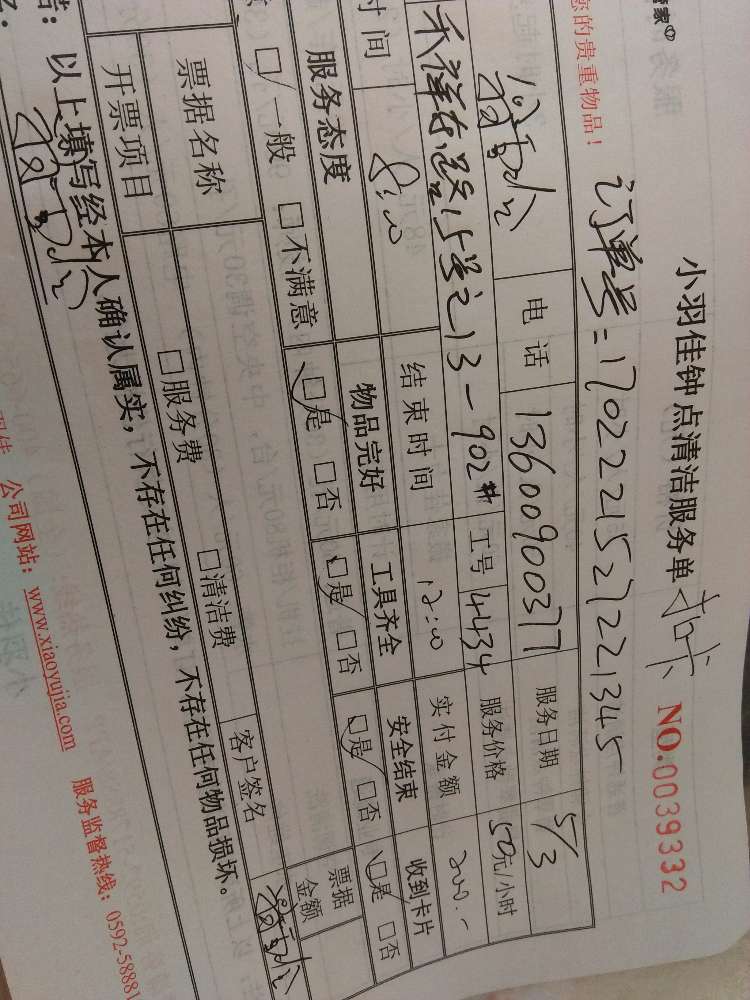 管家
小羽佳钟点清洁服务单 扣卡 NO:0039332
您的贵重物品！
订单号：17022215272221345
电话 13600900377 服务日期 5/3
15号之13-902# 工号 4434 服务价格 50元/小时
时间 8:00 结束时间 12:00 实付金额 200.-
服务态度 物品完好 工具齐全 安全结束 收到卡片
□一般 □不满意 □是 □否 □是 □否 □是 □否 □是 □否
票据名称 票据金额
开票项目 □服务费 □清洁费 客户签名
以上填写经本人确认属实，不存在任何纠纷，不存在任何物品损坏。
公司网站：www.xiaoyujia.com 服务监督热线：0592-58881